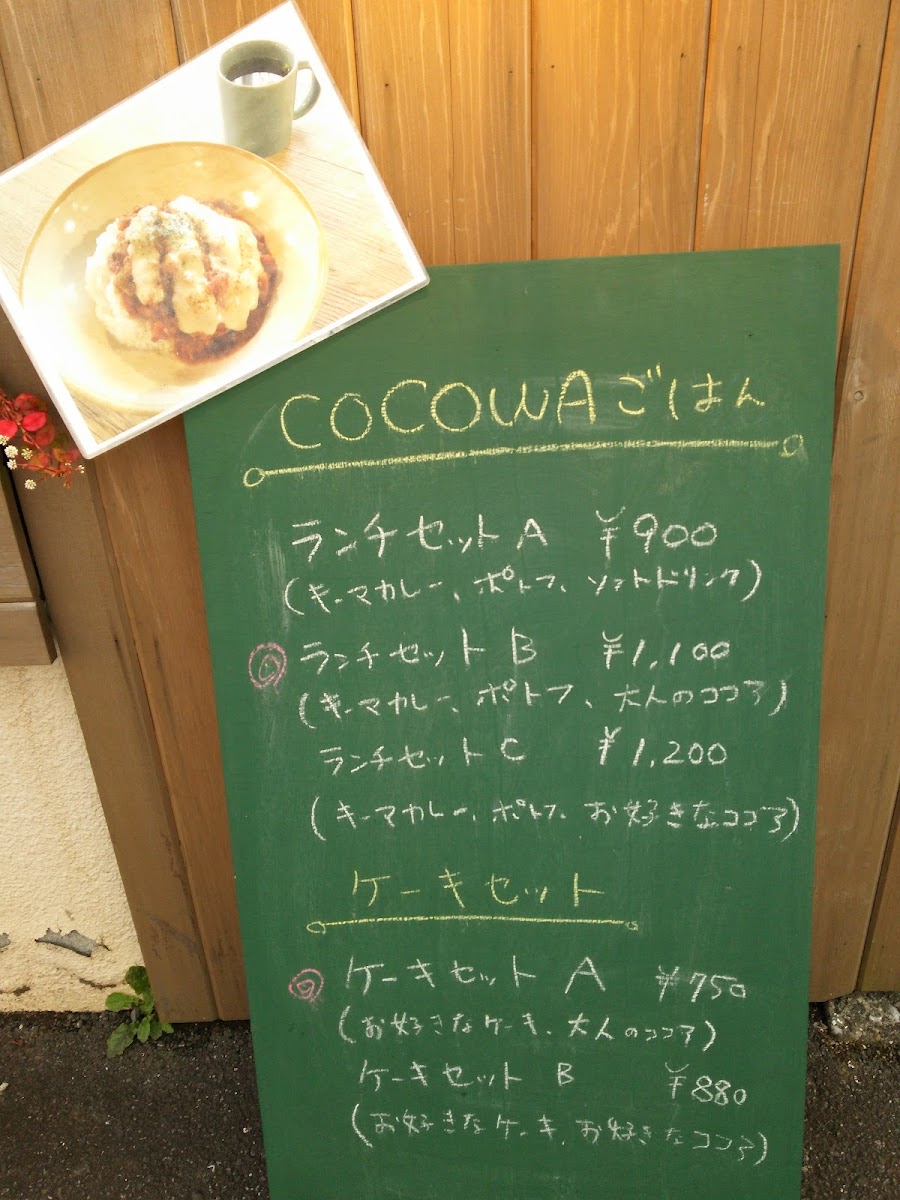 COCOWAごはん
ランチセット A ¥900
(キーマカレー、ポトフ、ソフトドリンク)
ランチセット B ¥1,100
(キーマカレー、ポトフ、大人のココア)
ランチセット C ¥1,200
(キーマカレー、ポトフ、お好きなココア)
ケーキセット
ケーキセット A ¥750
(お好きなケーキ、大人のココア)
ケーキセット B ¥880
(お好きなケーキ、お好きなココア)